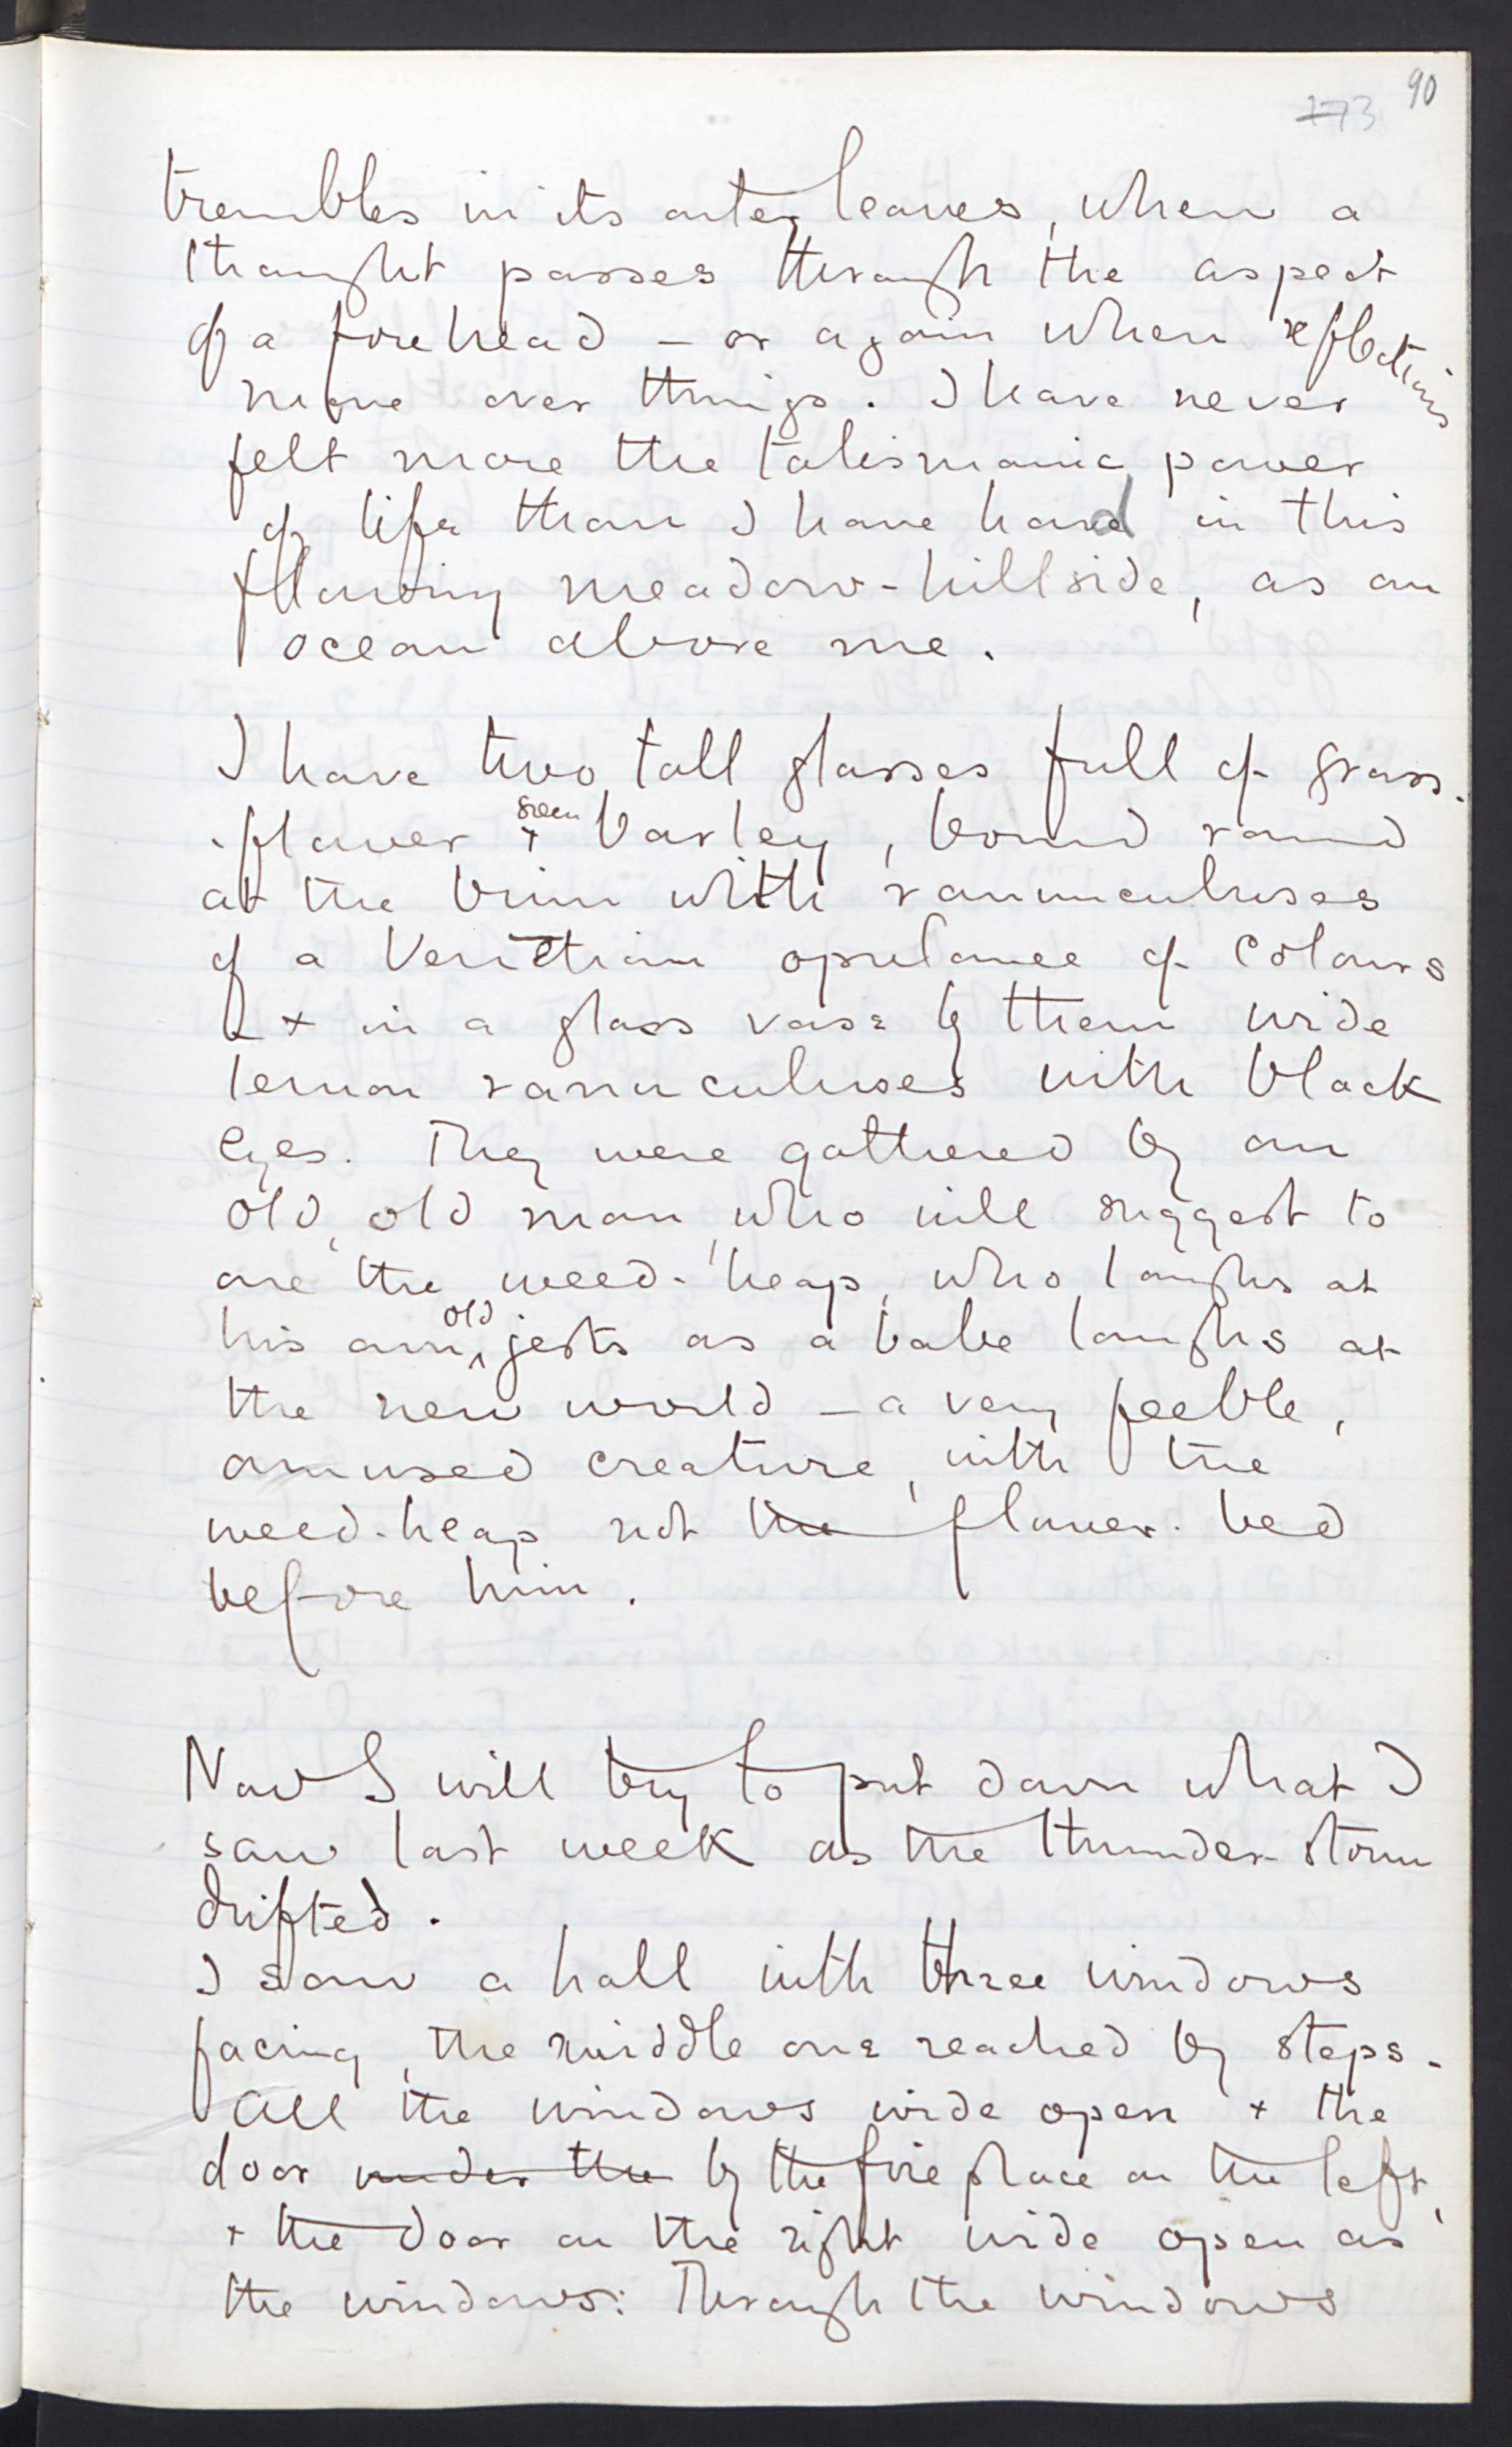 90
173
trembles in its outer leaves, when a
thought passes through the aspect
of a forehead – or again when reflections
move over things. I have never
felt more the talismanic power
of life than I have had in this
flowing meadow-hillside, as an
ocean above me.
I have two tall glasses full of grass-
-flower + green barley, bound round
at the brim with rannunculuses
of a Venetian opulance of colours
+ in a glass vase by them wide
lemon ranunculuses with black
eyes. They were gathered by an
old, old man, who will suggest to
one the weed-heap, who laughs at
his own old jests as a babe laughs at
the new world – a very feeble,
amused creature, with the
weed-heap not the flower-bed
before him.
Now I will try to put down what I
saw last week as the thunder-storm
drifted.
I saw a hall with three windows
facing, the middle one reached by steps.
All the windows wide open + the
door under the by the fireplace on the left,
+ the door on the right wide open as
the windows: Through the windows